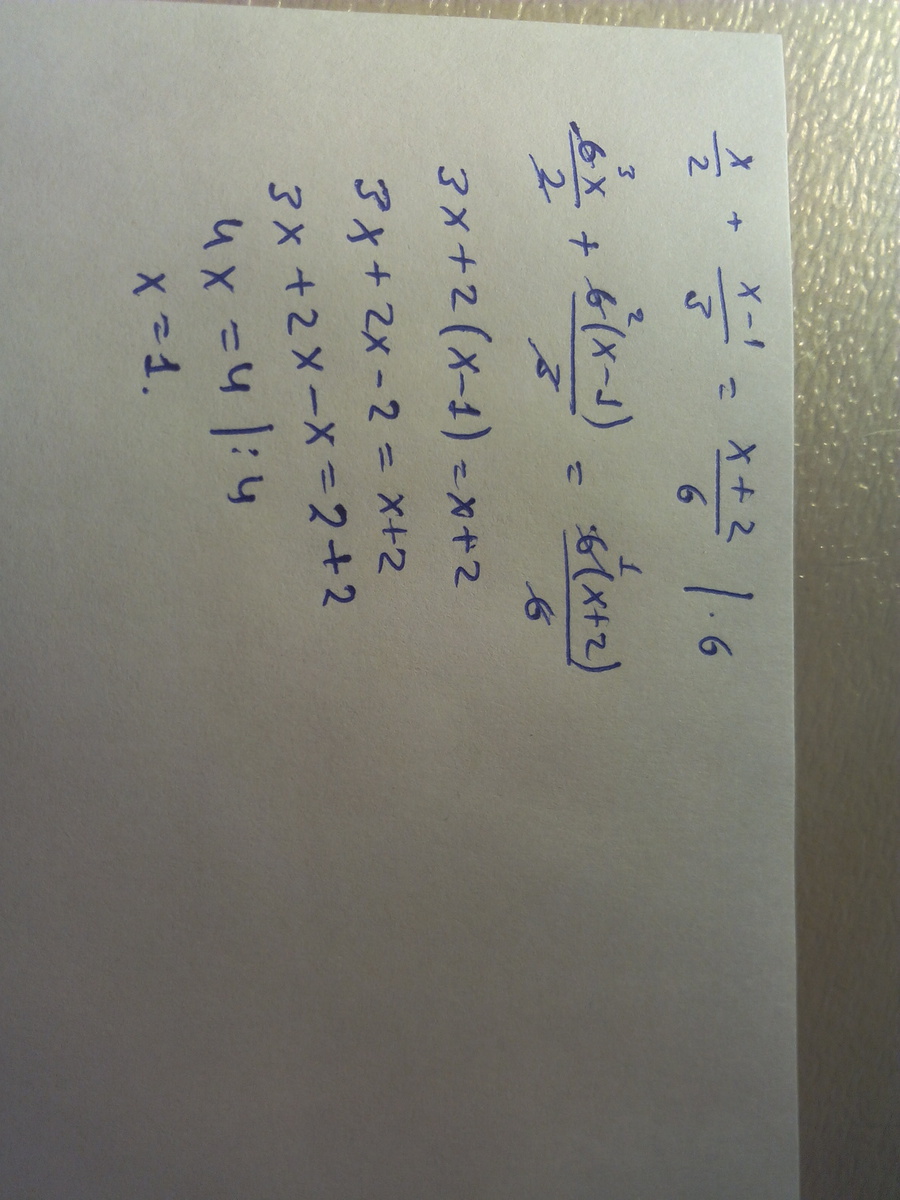 x/2 + x-1/3 = x+2/6 | · 6
6x/2 ³ + 6²(x-1)/3 = 6¹(x+2)/6
3x + 2(x-1) = x+2
3x + 2x - 2 = x+2
3x + 2x - x = 2+2
4x = 4 | : 4
x = 1.